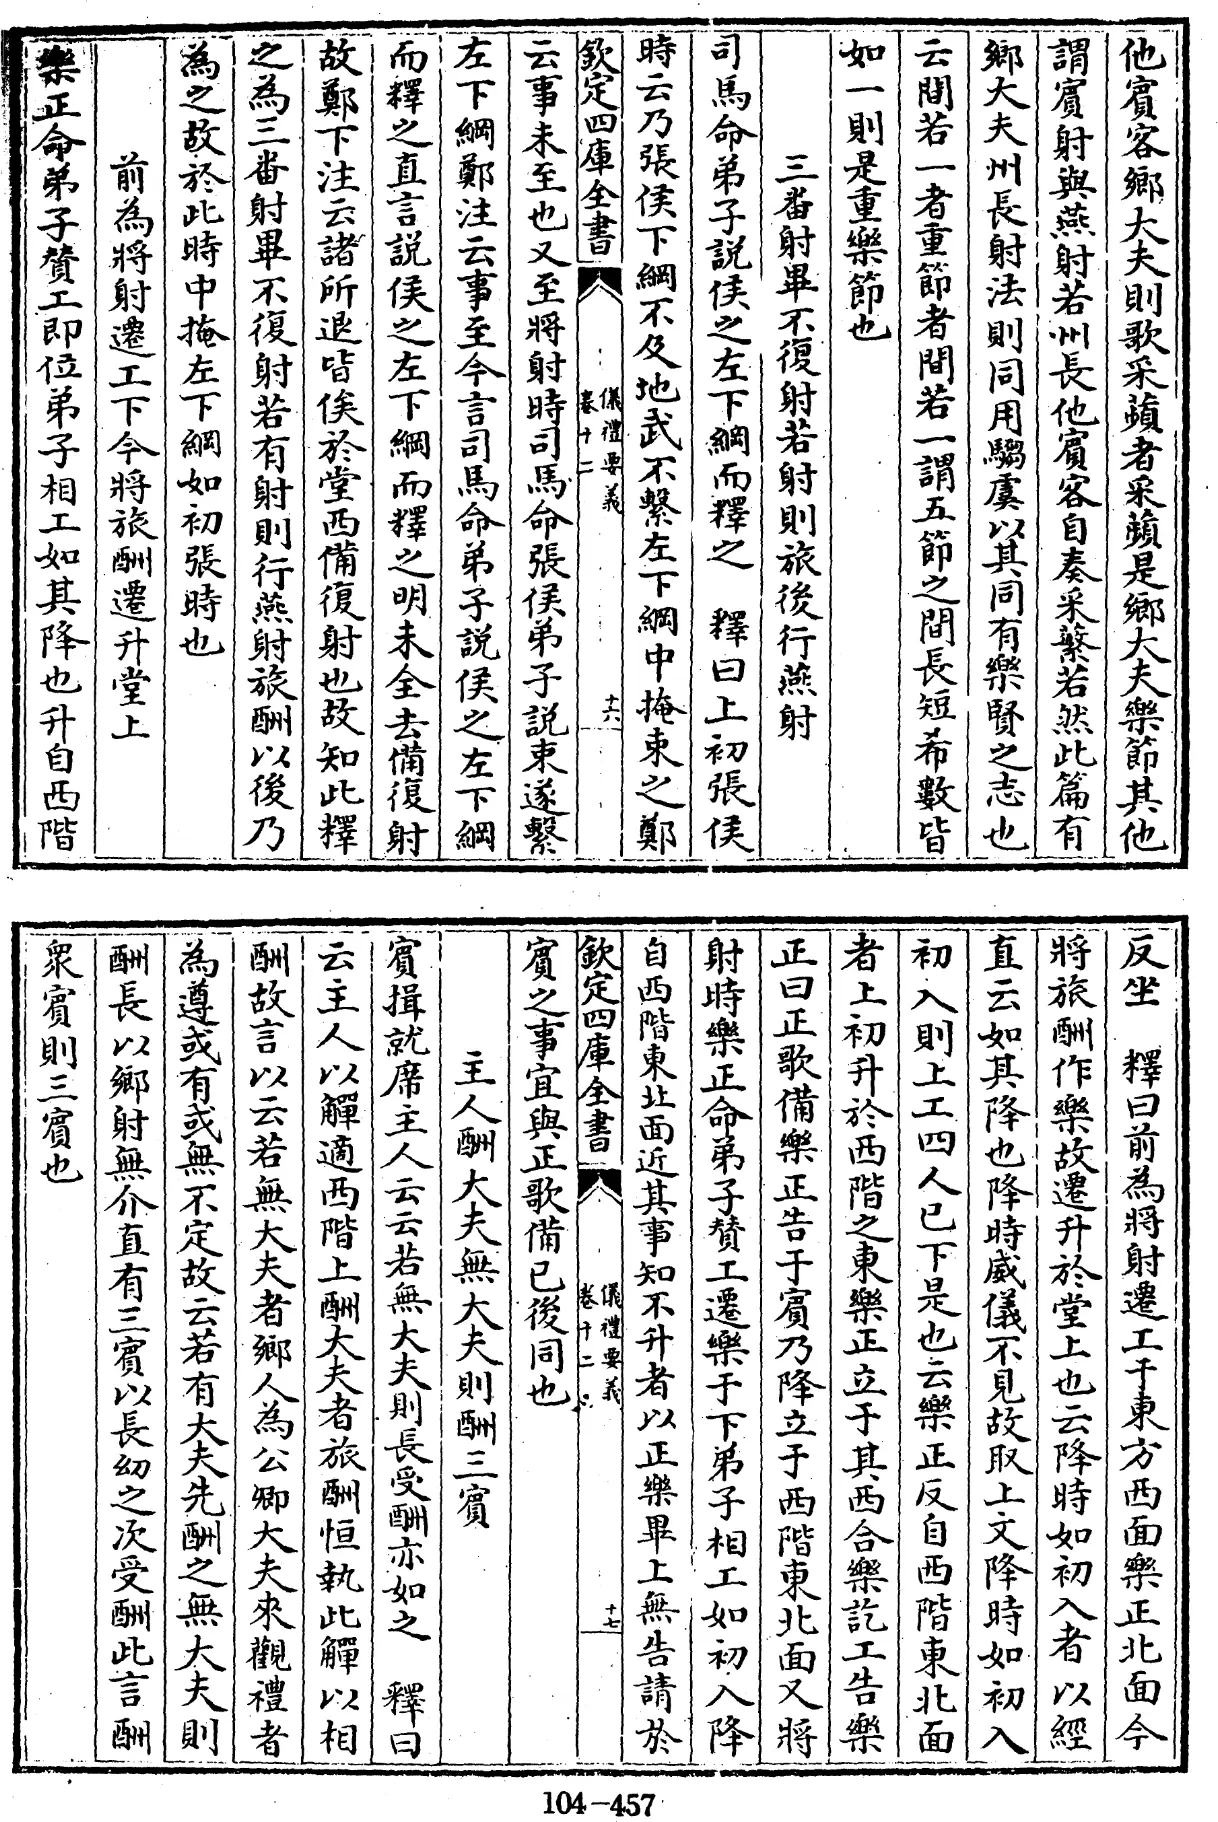 他賓客鄉大夫則歌采蘋者采蘋是鄉大夫樂節其他
謂賓射與燕射若州長他賓客自奏采蘩若然此篇有
鄉大夫州長射法則同用騶虞以其同有樂賢之志也
云間若一者重節者間若一謂五節之間長短希數皆
如一則是重樂節也
三番射畢不復射若射則旅後行燕射
司馬命弟子說侯之左下綱而釋之 釋曰上初張侯
時云乃張侯下綱不及地武不繫左下綱中掩束之鄭
欽定四庫全書
儀禮要義
卷十二
十六
云事未至也又至將射時司馬命張侯弟子說束遂繫
左下綱鄭注云事至今言司馬命弟子說侯之左下綱
而釋之直言說侯之左下綱而釋之明未全去備復射
故鄭下注云諸所退皆俟於堂西備復射也故知此釋
之為三番射畢不復射若有射則行燕射旅酬以後乃
為之故於此時中掩左下綱如初張時也
前為將射遷工下今將旅酬遷升堂上
樂正命弟子贊工即位弟子相工如其降也升自西階
反坐 釋曰前為將射遷工于東方西面樂正北面今
將旅酬作樂故遷升於堂上也云降時如初入者以經
直云如其降也降時威儀不見故取上文降時如初入
初入則上工四人已下是也云樂正反自西階東北面
者上初升於西階之東樂正立于其西合樂訖工告樂
正曰正歌備樂正告于賓乃降立于西階東北面又將
射時樂正命弟子贊工遷樂于下弟子相工如初入降
自西階東北面近其事知不升者以正樂畢上無告請於
欽定四庫全書
儀禮要義
卷十二
十七
賓之事宜與正歌備已後同也
主人酬大夫無大夫則酬三賓
賓揖就席主人云云若無大夫則長受酬亦如之 釋曰
云主人以觶適西階上酬大夫者旅酬恒執此觶以相
酬故言以云若無大夫者鄉人為公卿大夫來觀禮者
為遵或有或無不定故云若有大夫先酬之無大夫則
酬長以鄉射無介直有三賓以長幼之次受酬此言酬
眾賓則三賓也
104-457